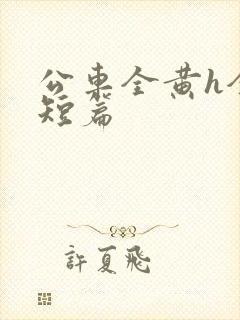 公車全黃h全
短篇
許夏飛